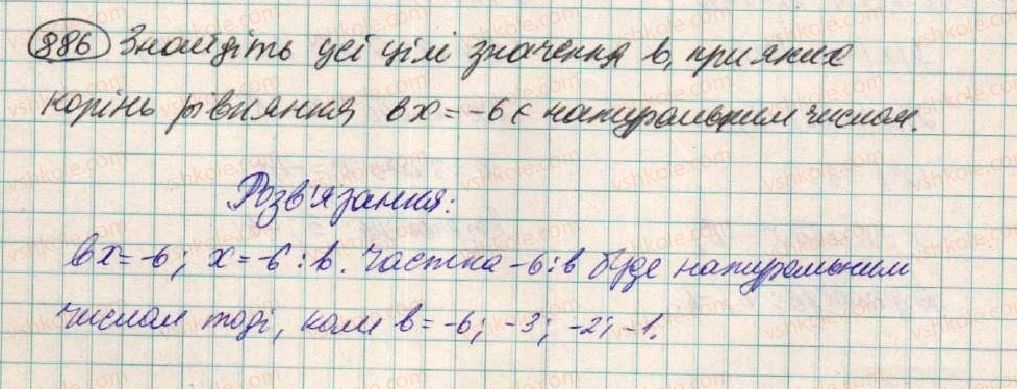 886 Знайдіть усі цілі значення в, при яких
корінь рівняння вх = -6 є натуральним числом.
Розв'язання:
вх = -6; х = -6 : в. Частка -6 : в буде натуральним
числом тоді, коли в = -6; -3; -2; -1.